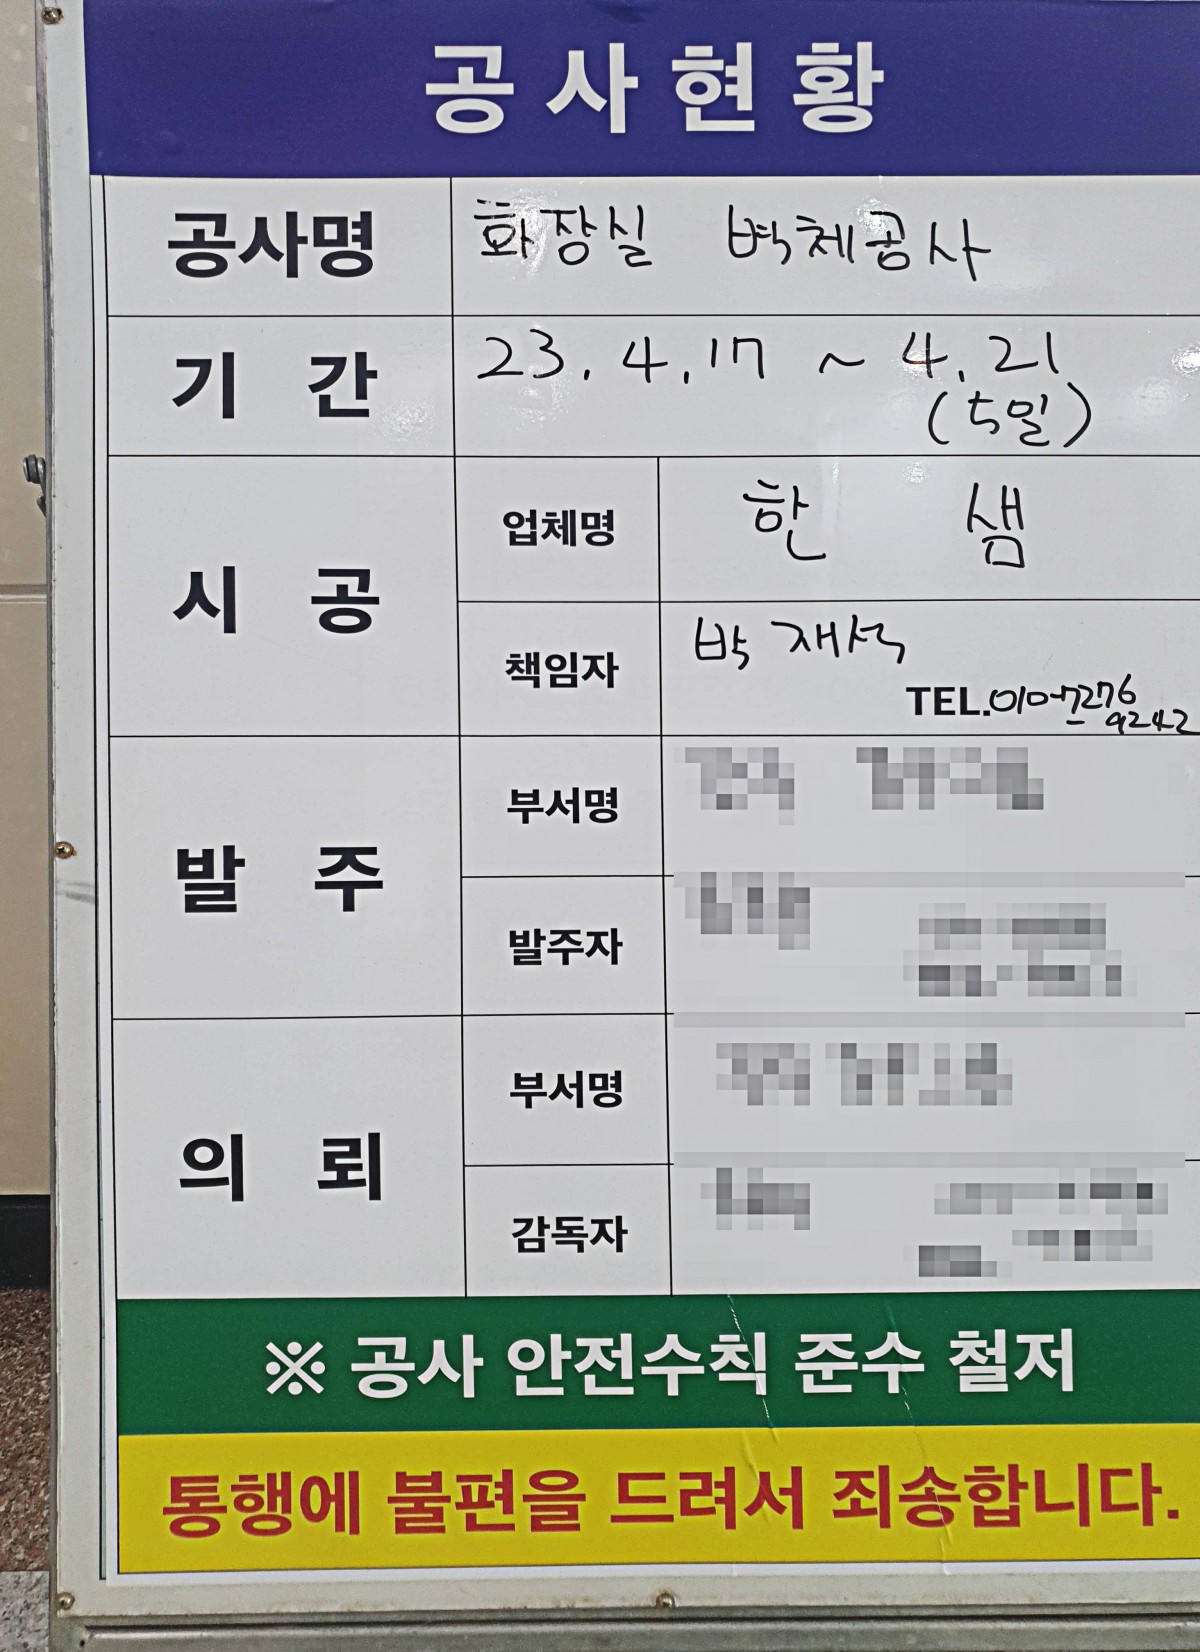 공사현황
공사명 화장실 벽체공사
기 간 23.4.17 ~ 4.21
(5일)
시 공
업체명 한 샘
책임자 박재석
TEL.010-7276
-9242
발 주
부서명
발주자
의 뢰
부서명
감독자
※ 공사 안전수칙 준수 철저
통행에 불편을 드려서 죄송합니다.